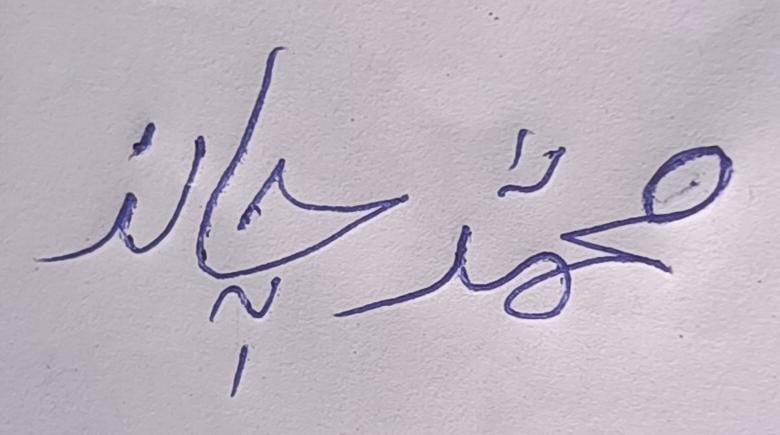 محمّد چاند